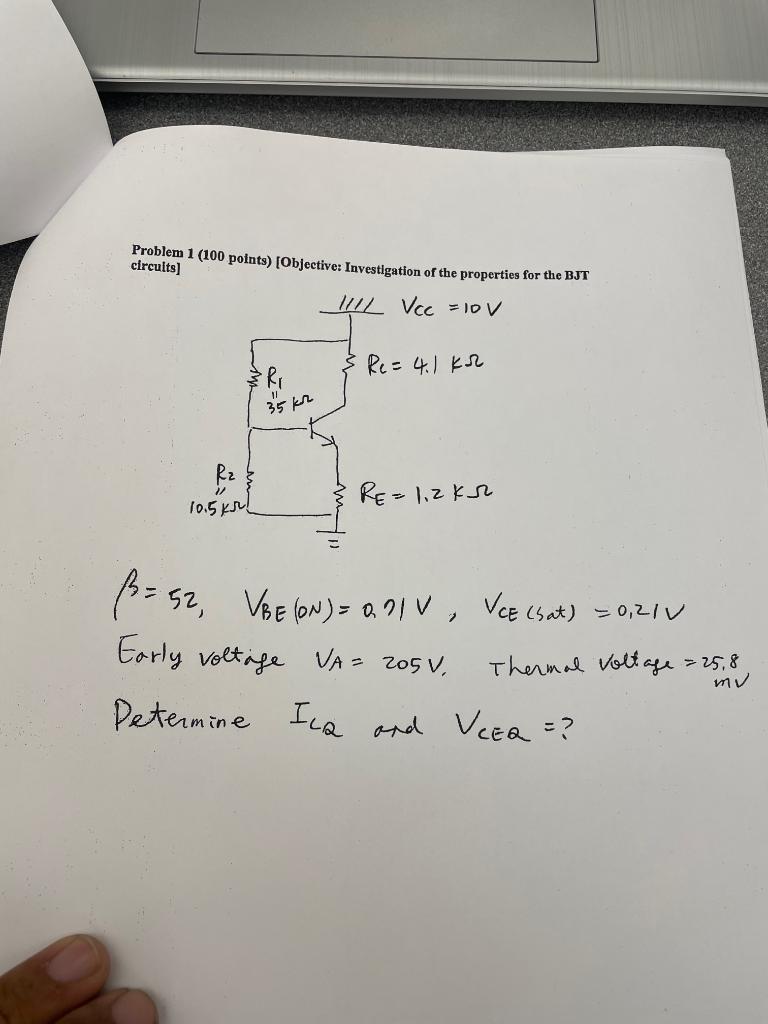 Problem 1 (100 points) [Objective: Investigation of the properties for the BJT
circuits]
Vcc = 10 V
Rc = 4.1 KΩ
R1
"
35 KΩ
R2
"
10.5 KΩ
RE = 1.2 KΩ
β = 52, VBE (ON) = 0.71 V, VCE (sat) = 0.21 V
Early voltage VA = 205 V. Thermal voltage = 25.8
mV
Determine ICQ and VCEQ = ?